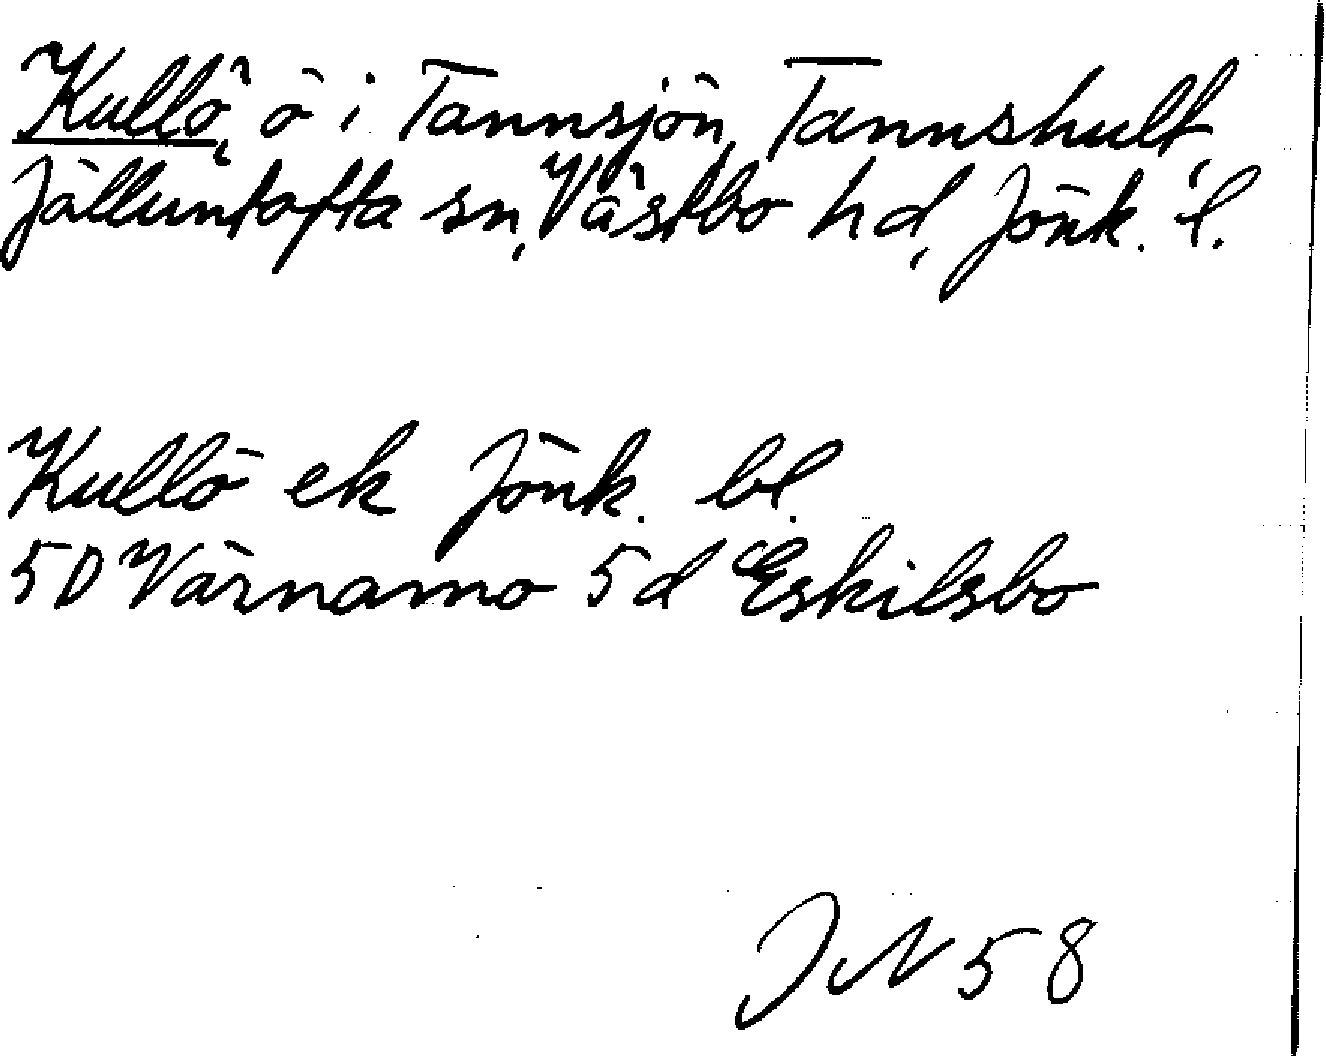 Kullö, ö i Tannsjön, Tannshult,
Jälluntofta sn, Västbo hd, Jönk. l.
Kullö ek Jönk. bl.
5D Värnamo 5d Eskilsbo
58